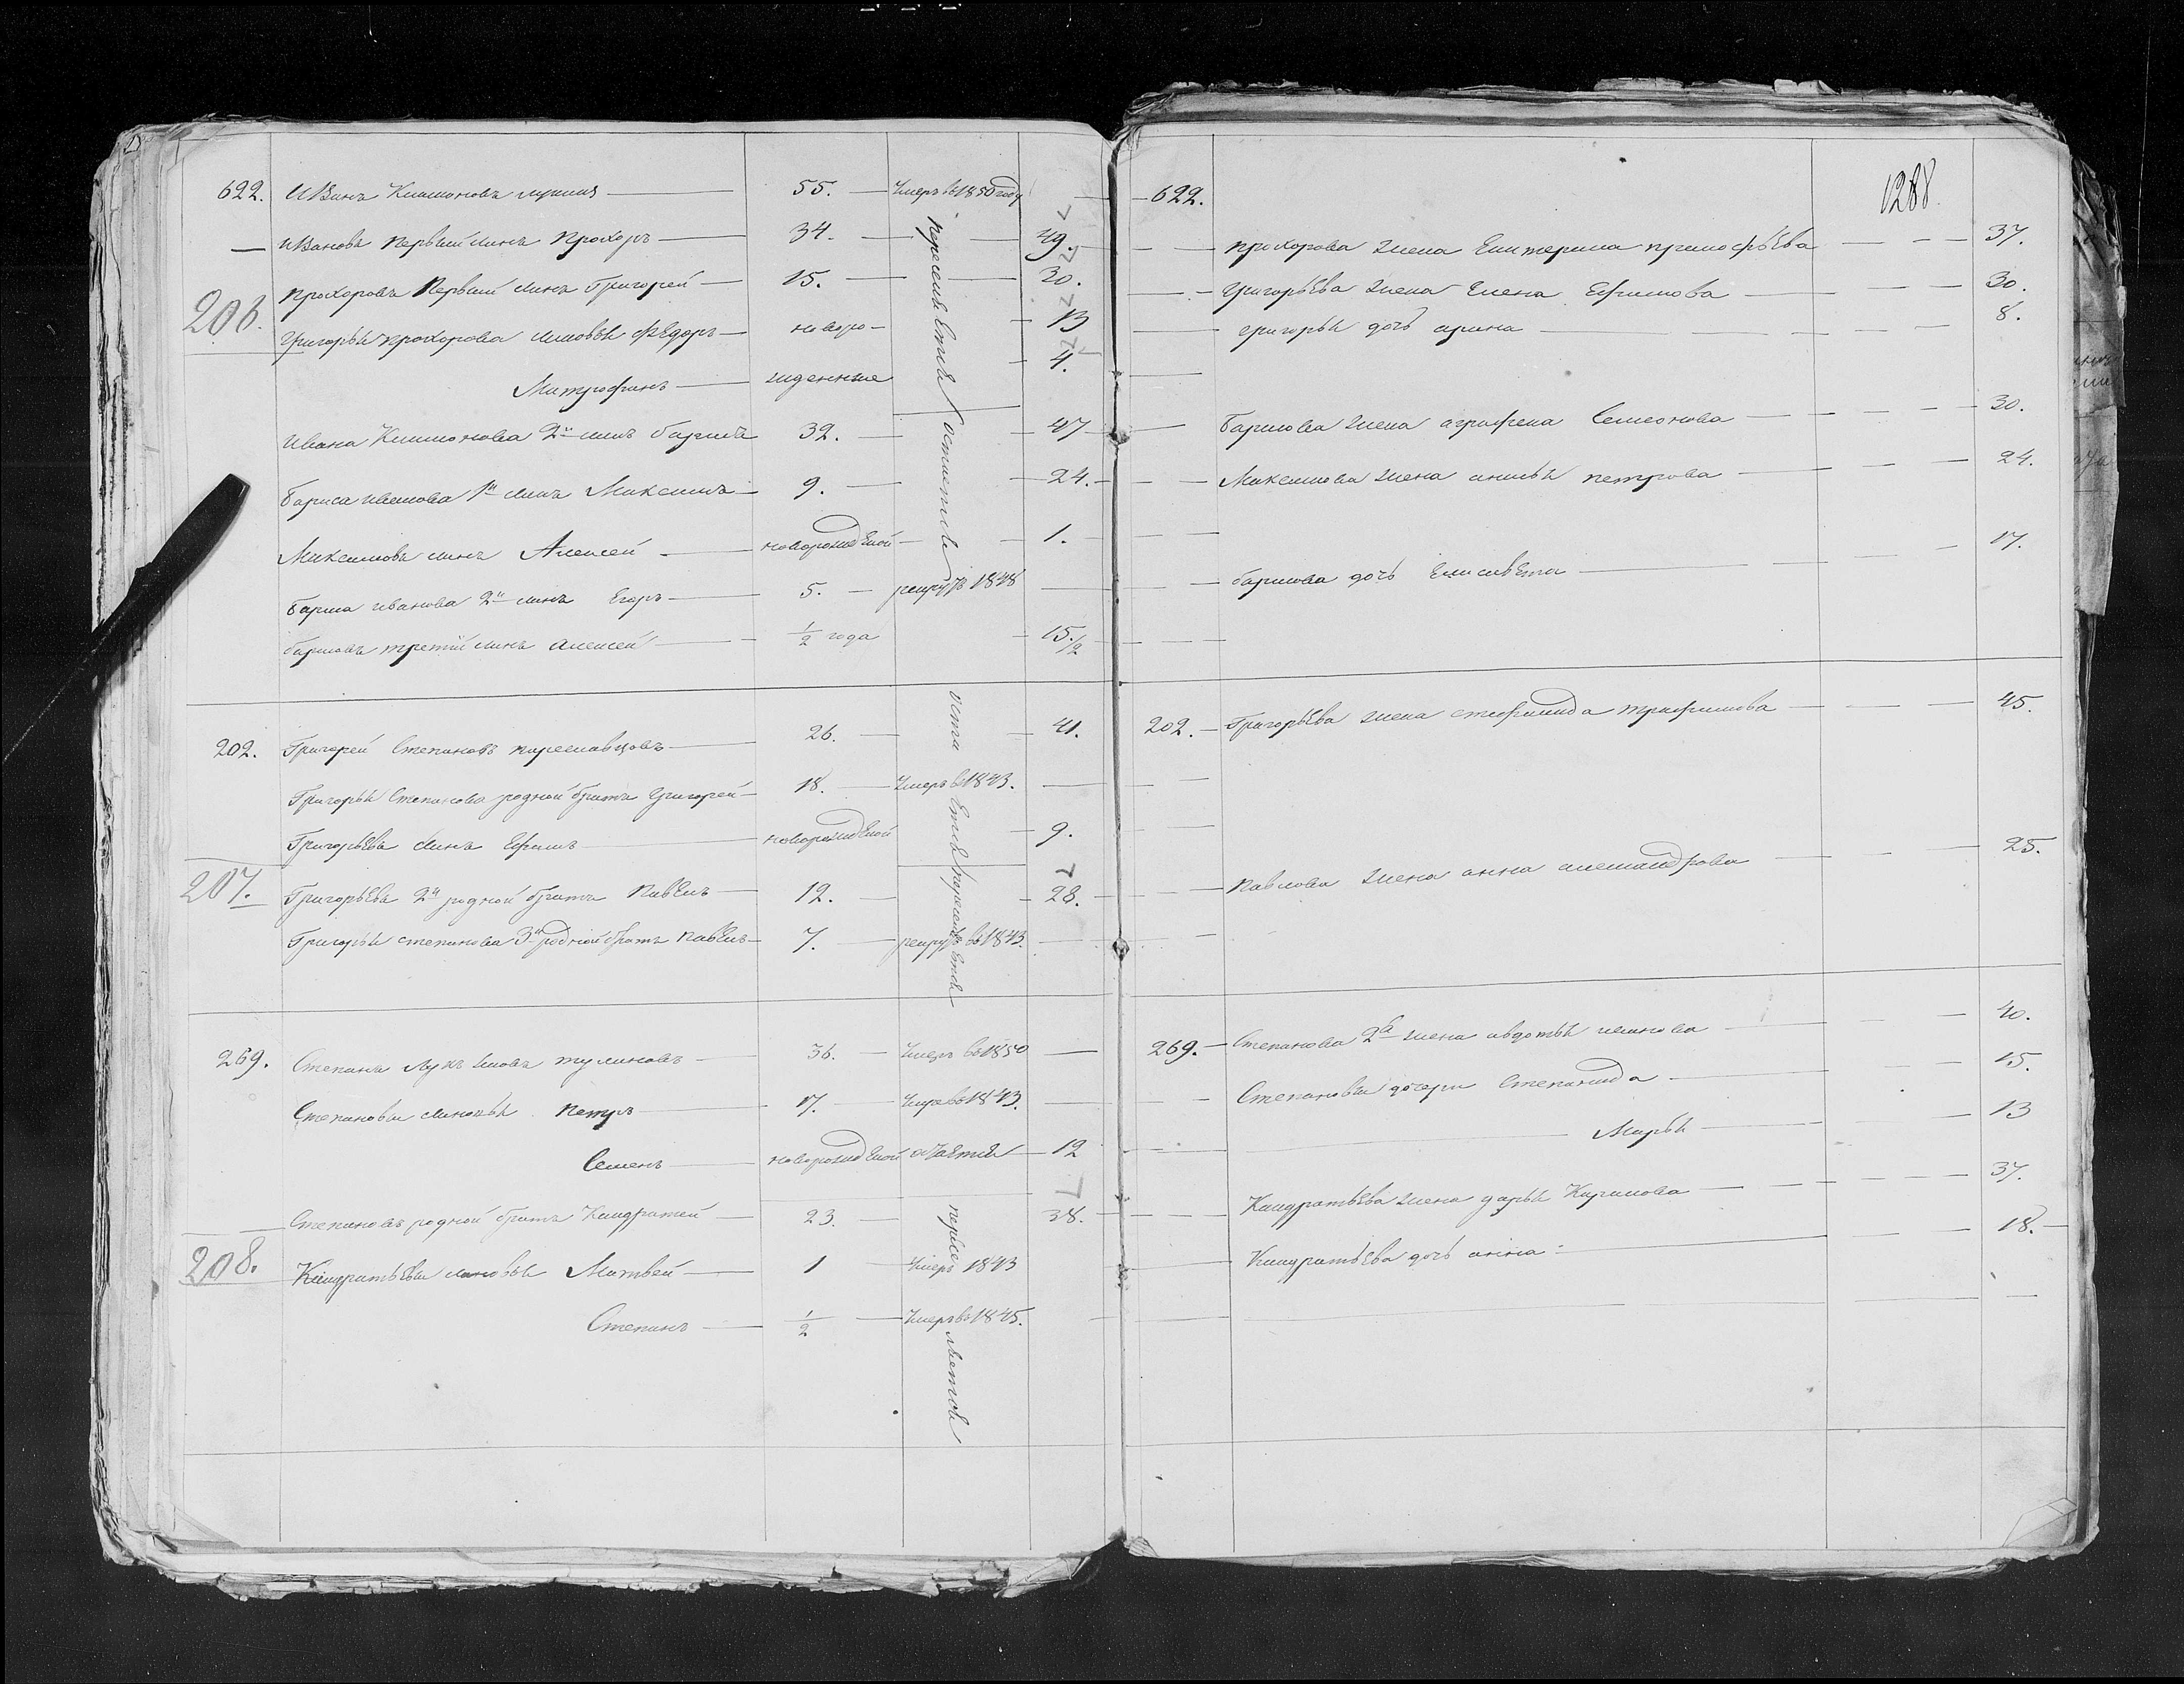 622. Иванъ Климоновъ — 55. — Умеръ въ 1850 году
Ивановъ первый сынъ Прохоръ — 34. — 49.
Прохоровъ Первый сынъ Григорей — 15. — 30.
206.
Григорьи Прохорова сыновьи Федоръ — новоро- — 13
Митрофанъ — жденные — 4.
переселяется
Ивана Климонова 2й сынъ барисъ 32. — 47
Бариса иванова 1й сынъ Максимъ — 9. — 24.
Максимовъ сынъ Алексей — новорожденой — 1.
остается
Бариса иванова 2й сынъ Егоръ — 5. — рекрутъ 1848
барисовъ третiй сынъ алексей — 1/2 года — 15 1/2
202. Григорей Степановъ переславцовъ — 26. — 41.
Григорьи Степанова родной братъ Григорей — 18. — Умеръ въ 1843.
Григорьева сынъ Ефимъ — новорожденой — 9.
остается
207.
Григорьева 2й родной братъ Павелъ — 12. — 28.
Григорьи степанова 3й родной братъ павелъ — 7. — рекрутъ въ 1843.
переселяется
269. Степанъ тулиновъ — 36. — Умеръ въ 1850
Степановы сыновьи Петръ — 17. — Умеръ въ 1843.
Семенъ — новорожденой остается — 12
Степановъ родной братъ Кандратей — 23. — 38.
208.
Кандратьевы сыновьи Матвей — 1 Умеръ 1843
Степанъ — 1/2 — Умеръ въ 1845.
переселяется
1288
622.
Прохорова жена Екатерина — 37.
Григорьева жена Елена Ефимова — 30.
григорьи дочь арина — 8.
Барисова жена аграфена Семионова — 30.
Максимова жена петрова — 24.
барисова дочь Елисавета — 17.
202. — Григорьева жена степанида трафимова — 45.
Павлова жена анна александрова — 25.
269. — Степанова 2я жена авдотьи иванова — 40.
Степановы дочери Степанида — 15.
Марьи — 13
Кандратьева жена дарьи Карпова — 37.
Кандратьева дочь анна — 18.